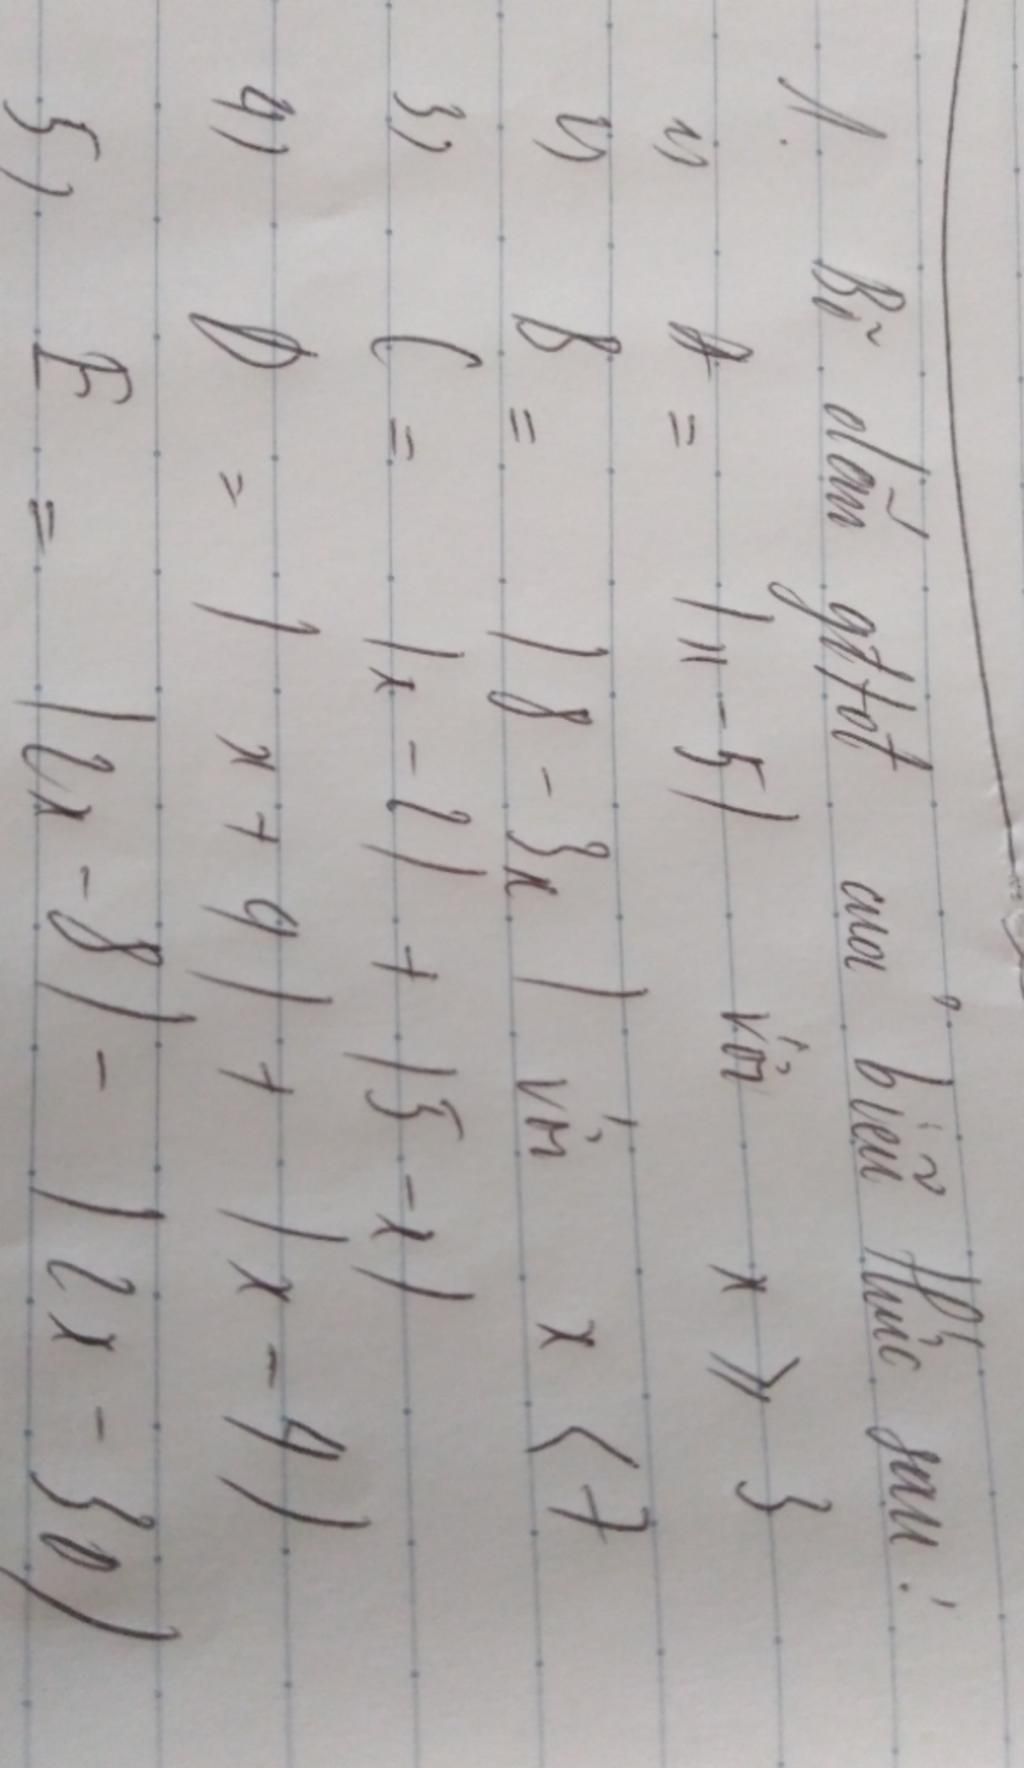 1. Bỏ dấu gttđ của biểu thức sau:
1) A = |x - 5| với x ≥ 3
2) B = |8 - 3x| với x < 7
3) C = |x - 2| + |5 - x|
4) D = |x + 9| + |x - 4|
5) E = |2x - 8| - |2x - 30|